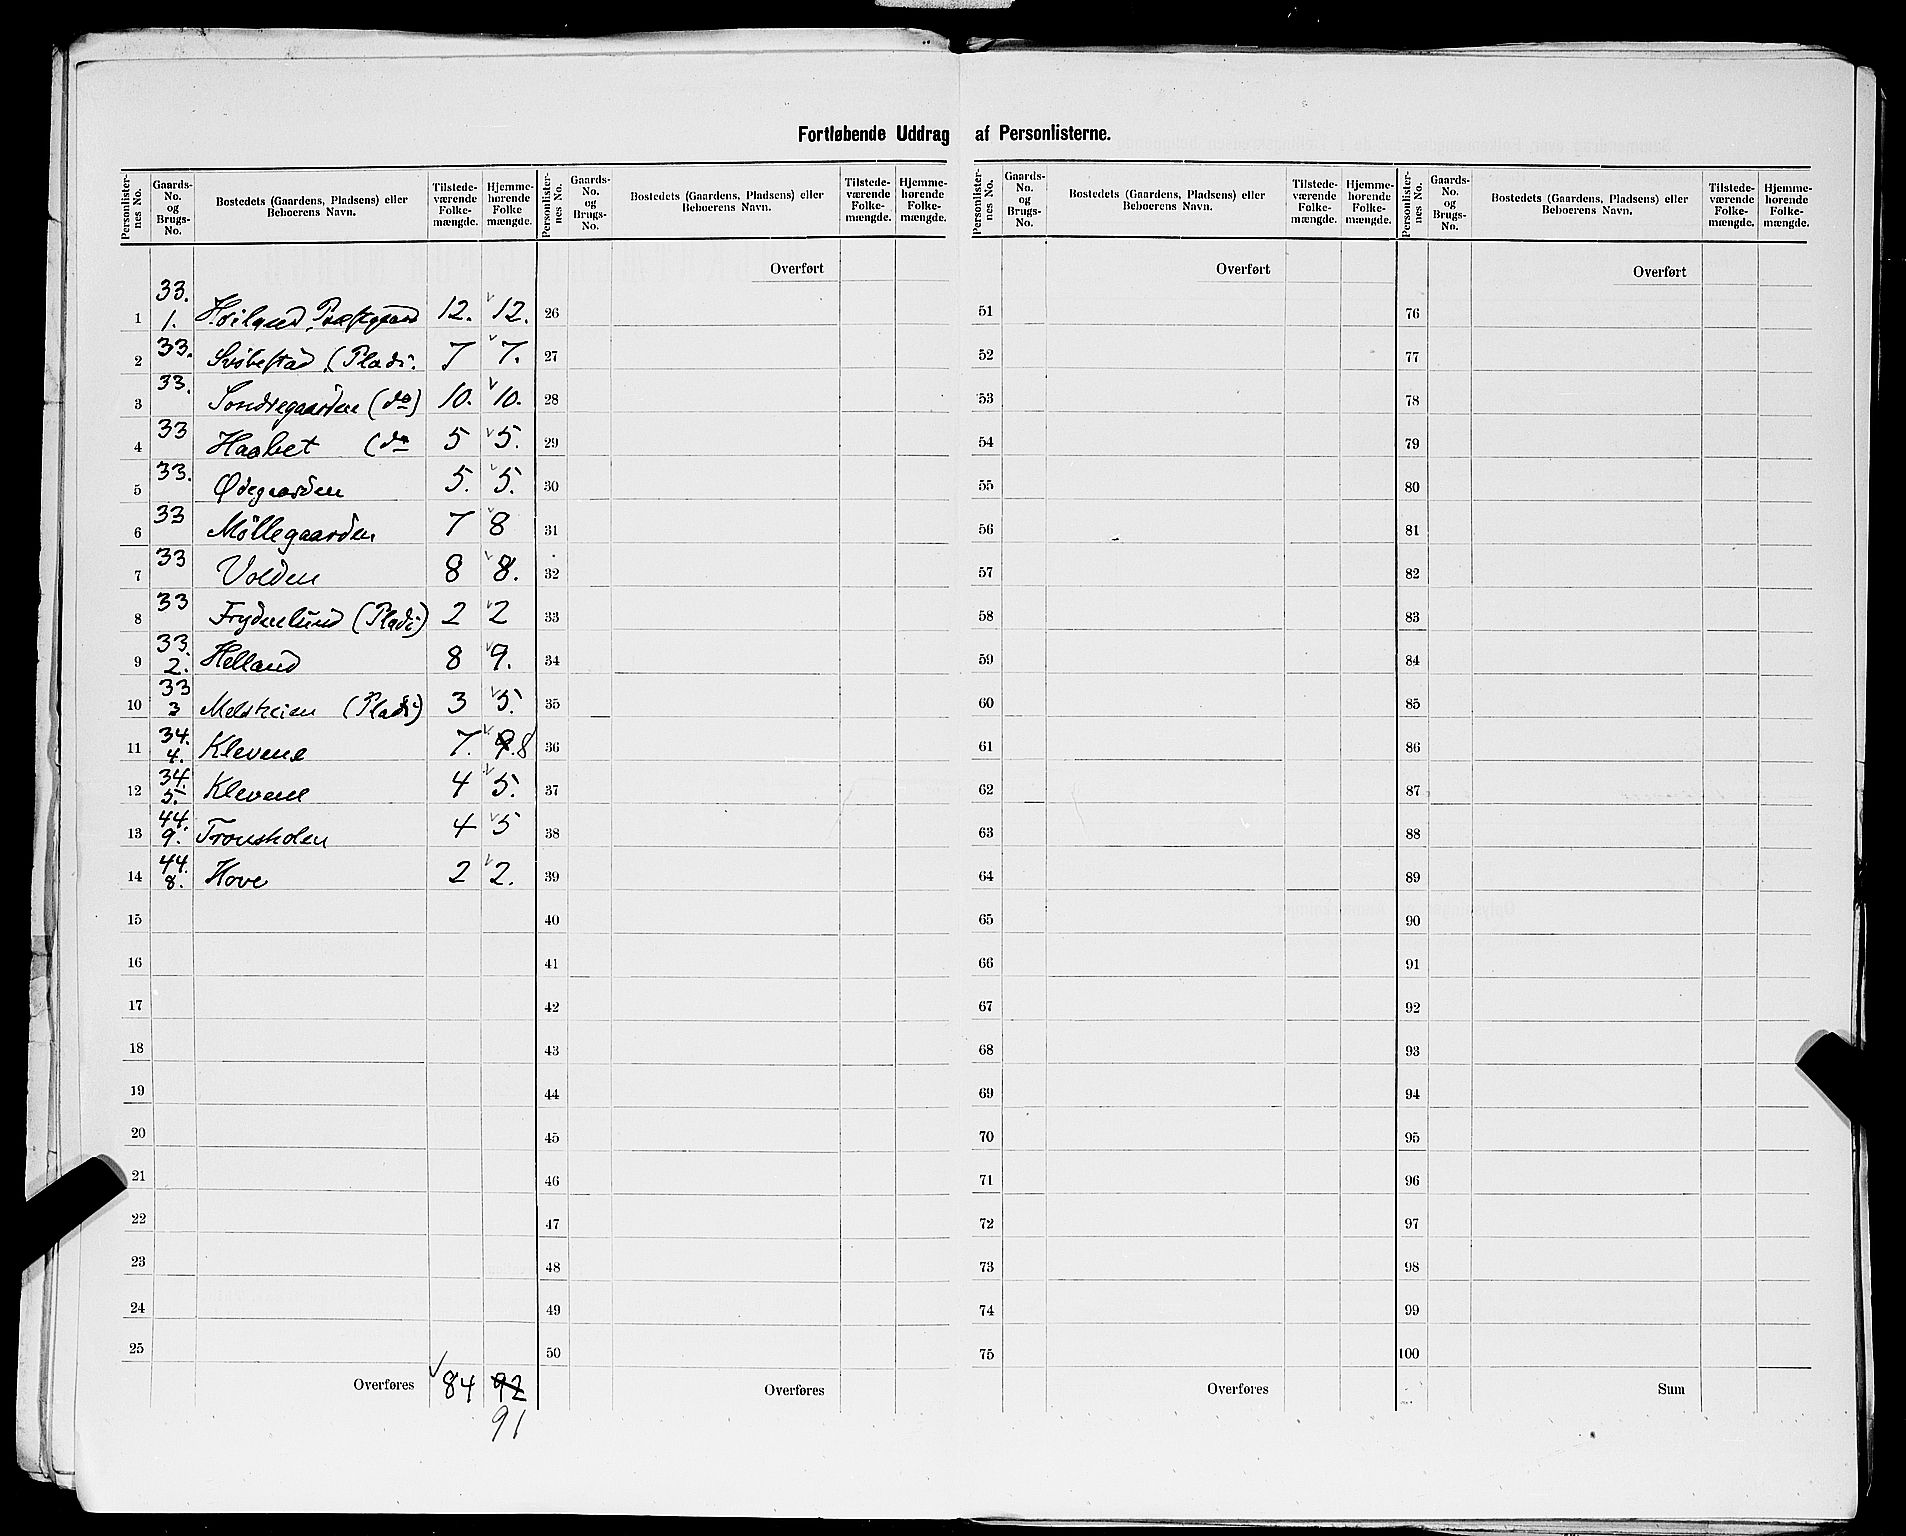 Fortløbende Uddrag af Personlisterne.
Personlister-nes No. | Gaards-No. og Brugs-No. | Bostedets (Gaardens, Pladsens) eller Beboerens Navn. | Tilstede-værende Folke-mængde. | Hjemme-hørende Folke mængde.
1 | 33. 1. | Høiland Præstgaard | 12. | 12.
2 | 33. | (Plads. | 7 | 7.
3 | 33. | Søndregaarden (do) | 10. | 10.
4 | 33 | Haabet (do | 5 | 5.
5 | 33. | Ødegaarden | 5. | 5.
6 | 33 | Møllegaarden | 7 | 8
7 | 33 | Volden | 8 | 8.
8 | 33 | Frydenlund (Plads) | 2 | 2
9 | 33. 2. | Helland | 8 | 9.
10 | 33 3 | Melsheien (Plads) | 3 | 5.
11 | 34. 4. | Klevene | 7. | 9. 8
12 | 34. 5. | Klevene | 4 | 5.
13 | 44. 9. | Tronsholen | 4 | 5
14 | 44. 8. | Hove | 2 | 2.
15
16
17
18
19
20
21
22
23
24
25
Overføres | 84 | 92
91
Personlister-nes No. | Gaards-No. og Brugs-No. | Bostedets (Gaardens, Pladsens) eller Beboerens Navn. | Tilstede-værende Folke-mængde. | Hjemme-hørende Folke-mængde.
Overført
26
27
28
29
30
31
32
33
34
35
36
37
38
39
40
41
42
43
44
45
46
47
48
49
50
Overføres
Personlister-nes No. | Gaards-No. og Brugs-No. | Bostedets (Gaardens, Pladsens) eller Beboerens Navn. | Tilstede-værende Folke-mængde. | Hjemme-hørende Folke-mængde.
Overført
51
52
53
54
55
56
57
58
59
60
61
62
63
64
65
66
67
68
69
70
71
72
73
74
75
Overføres
Personlister-nes No. | Gaards-No. og Brugs-No. | Bostedets (Gaardens, Pladsens) eller Beboerens Navn. | Tilstede-værende Folke-mængde. | Hjemme-hørende Folke-mængde.
Overført
76
77
78
79
80
81
82
83
84
85
86
87
88
89
90
91
92
93
94
95
96
97
98
99
100
Sum